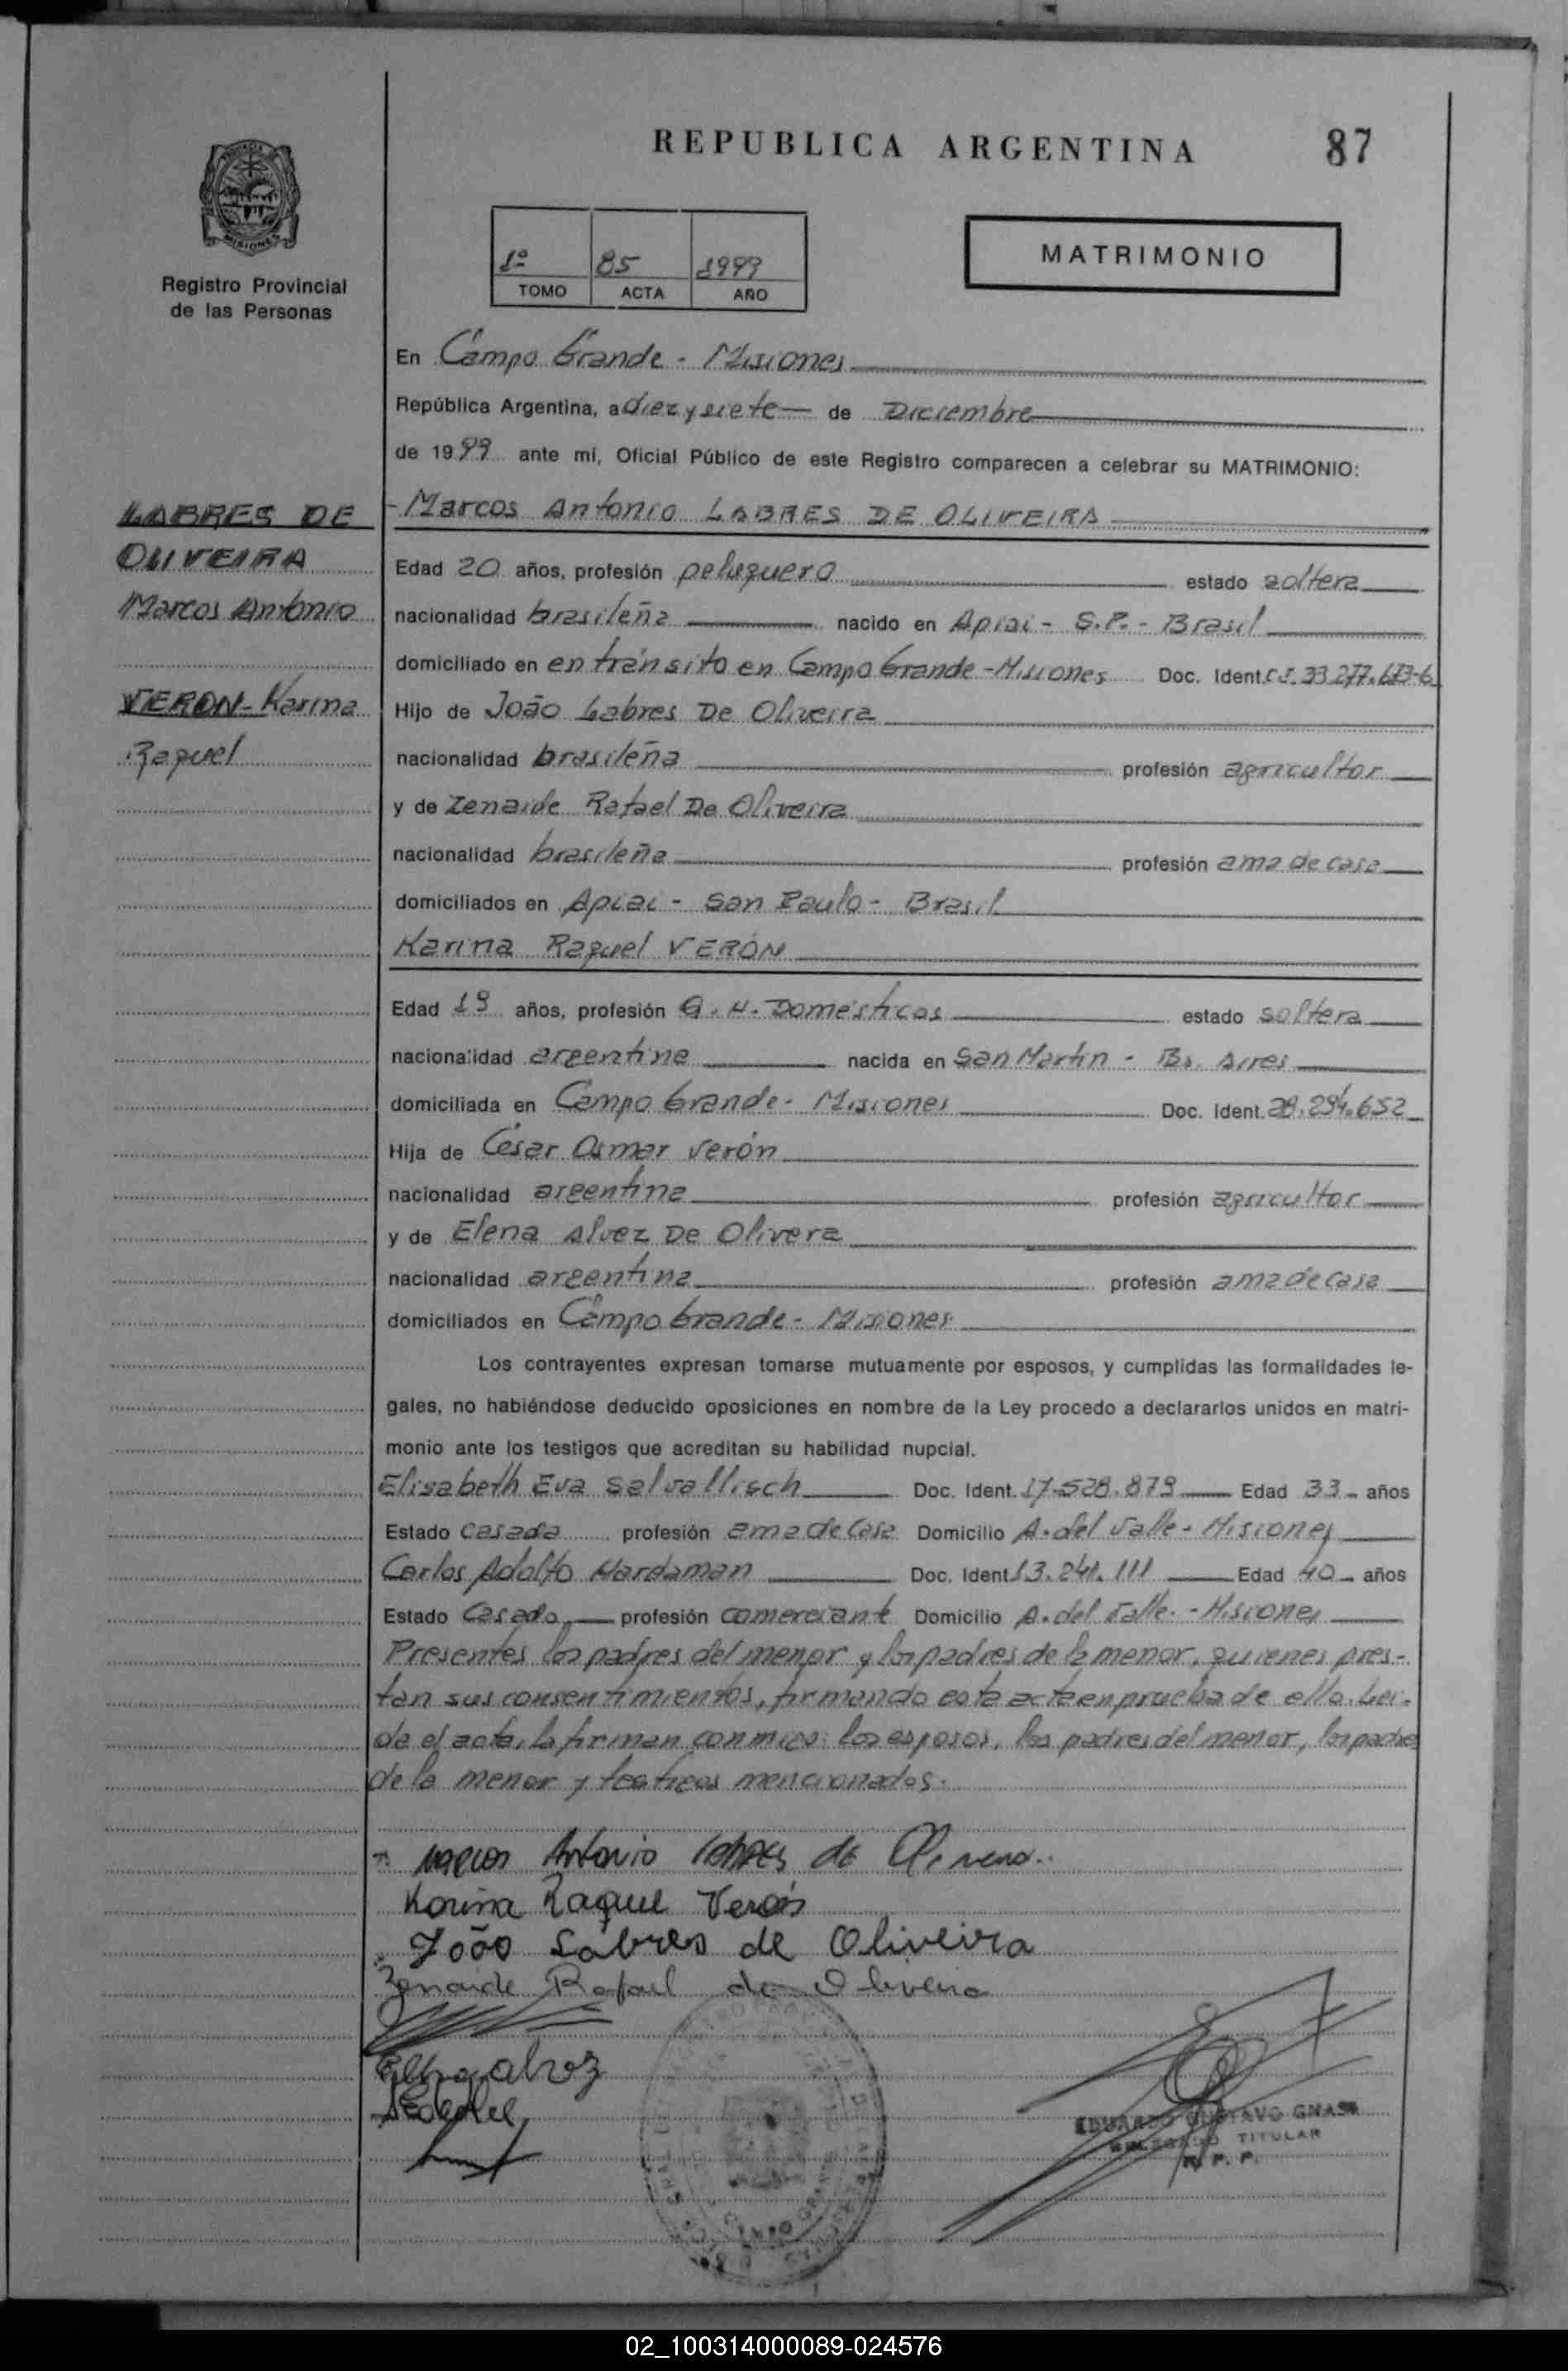 REPUBLICA ARGENTINA
87
PROVINCIA DE
MISIONES
Registro Provincial
de las Personas
1º 85 1999
TOMO ACTA AÑO
MATRIMONIO
En Campo Grande - Misiones
República Argentina, a diez y siete de Diciembre
de 1999 ante mí, Oficial Público de este Registro comparecen a celebrar su MATRIMONIO:
LABRES DE
OLIVEIRA
Marcos Antonio
VERON - Karina
Raquel
- Marcos Antonio LABRES DE OLIVEIRA
Edad 20 años, profesión peluquero estado soltera
nacionalidad brasileña nacido en Apiai - S.P. - Brasil
domiciliado en en tránsito en Campo Grande - Misiones Doc. Ident. C.I. 33.277.673-6
Hijo de João Labres De Oliveira
nacionalidad brasileña profesión agricultor
y de Zenaide Rafael De Oliveira
nacionalidad brasileña profesión ama de casa
domiciliados en Apiai - San Paulo - Brasil
Karina Raquel VERÓN
Edad 19 años, profesión Q. H. Domésticos estado soltera
nacionalidad argentina nacida en San Martín - Bs. Aires
domiciliada en Campo Grande - Misiones Doc. Ident. 28.294.652
Hija de César Osmar Verón
nacionalidad argentina profesión agricultor
y de Elena Alvez De Olivera
nacionalidad argentina profesión ama de casa
domiciliados en Campo Grande - Misiones
Los contrayentes expresan tomarse mutuamente por esposos, y cumplidas las formalidades le-
gales, no habiéndose deducido oposiciones en nombre de la Ley procedo a declararlos unidos en matri-
monio ante los testigos que acreditan su habilidad nupcial.
Elisabeth Eva Salvallisch Doc. Ident. 17.528.879 Edad 33 años
Estado casada profesión ama de casa Domicilio A. del Valle - Misiones
Carlos Adolfo Hardaman Doc. Ident. 13.241.111 Edad 40 años
Estado Casado profesión comerciante Domicilio A. del Valle - Misiones
Presentes los padres del menor y los padres de la menor, quienes pres-
tan sus consentimientos, firmando esta acta en prueba de ello. Leí-
da el acta, la firman conmigo: los esposos, los padres del menor, los padres
de la menor y testigos mencionados.
Marcos Antonio Labres de Oliveira
Karina Raquel Verón
João Labres de Oliveira
Zenaide Rafael de Oliveira
Alvez
EDUARDO GUSTAVO GNASS
DELEGADO TITULAR
R. P. P.
02_100314000089-024576